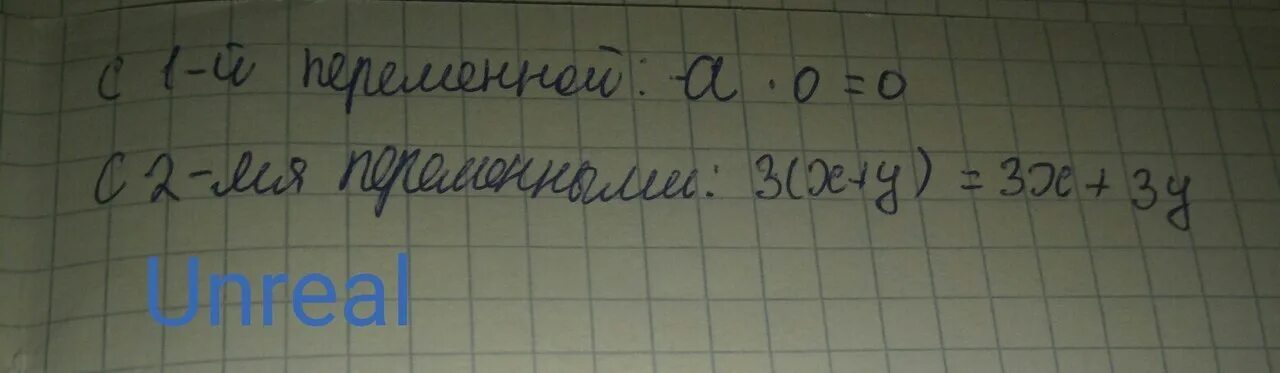 с 1-й переменной: -а · 0 = 0
с 2-мя переменными: 3(x+y) = 3x + 3y
Unreal